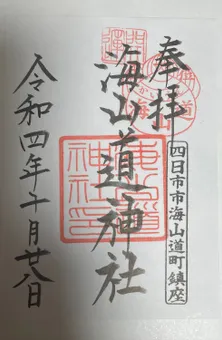 奉拝
四日市市海山道町鎮座
海山道神社
令和四年十月廿八日